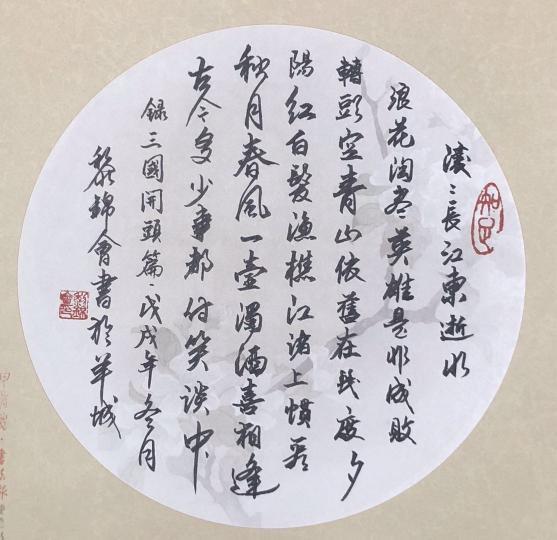 知足
滾〻長江東逝水
浪花淘盡英雄是非成敗
轉頭空青山依舊在幾度夕
陽紅白髮漁樵江渚上慣看
秋月春風一壺濁酒喜相逢
古今多少事都付笑談中
錄三國開頭篇·戊戌年冬月
黎錦會書於羊城